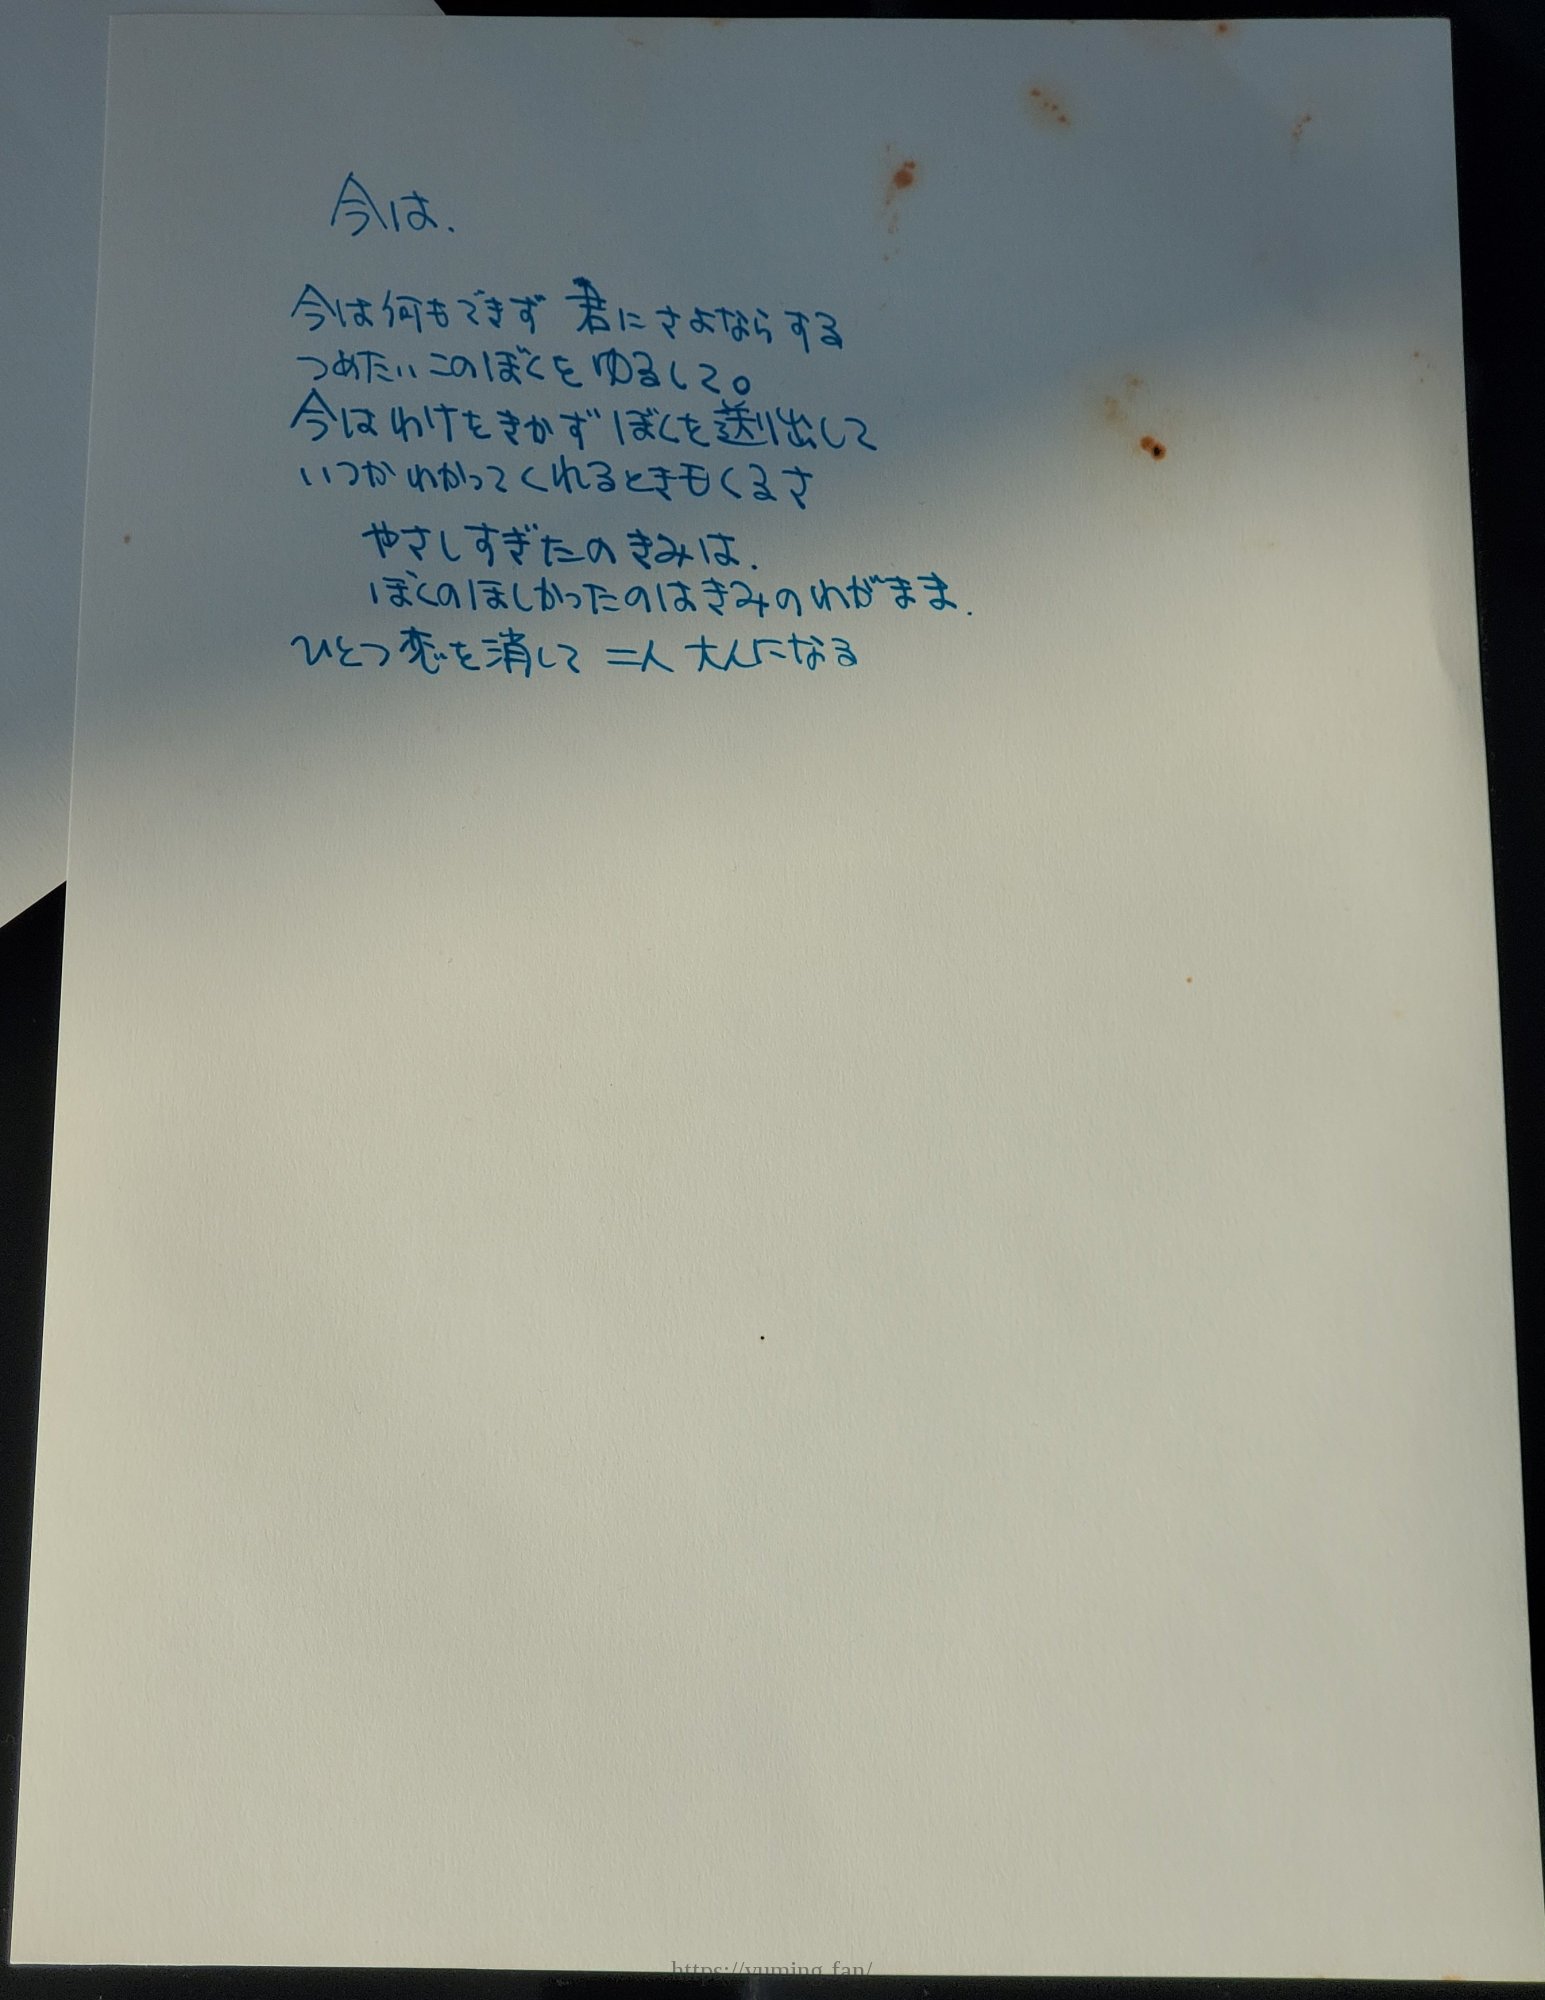 今は.
今は何もできず 君にさよならする
つめたいこのぼくを ゆるして。
今はわけをきかず ぼくを送り出して
いつかわかってくれるときもくるさ
やさしすぎたの きみは.
ぼくのほしかったのはきみのわがまま.
ひとつ恋を消して 二人 大人になる
https://yuming.fan/